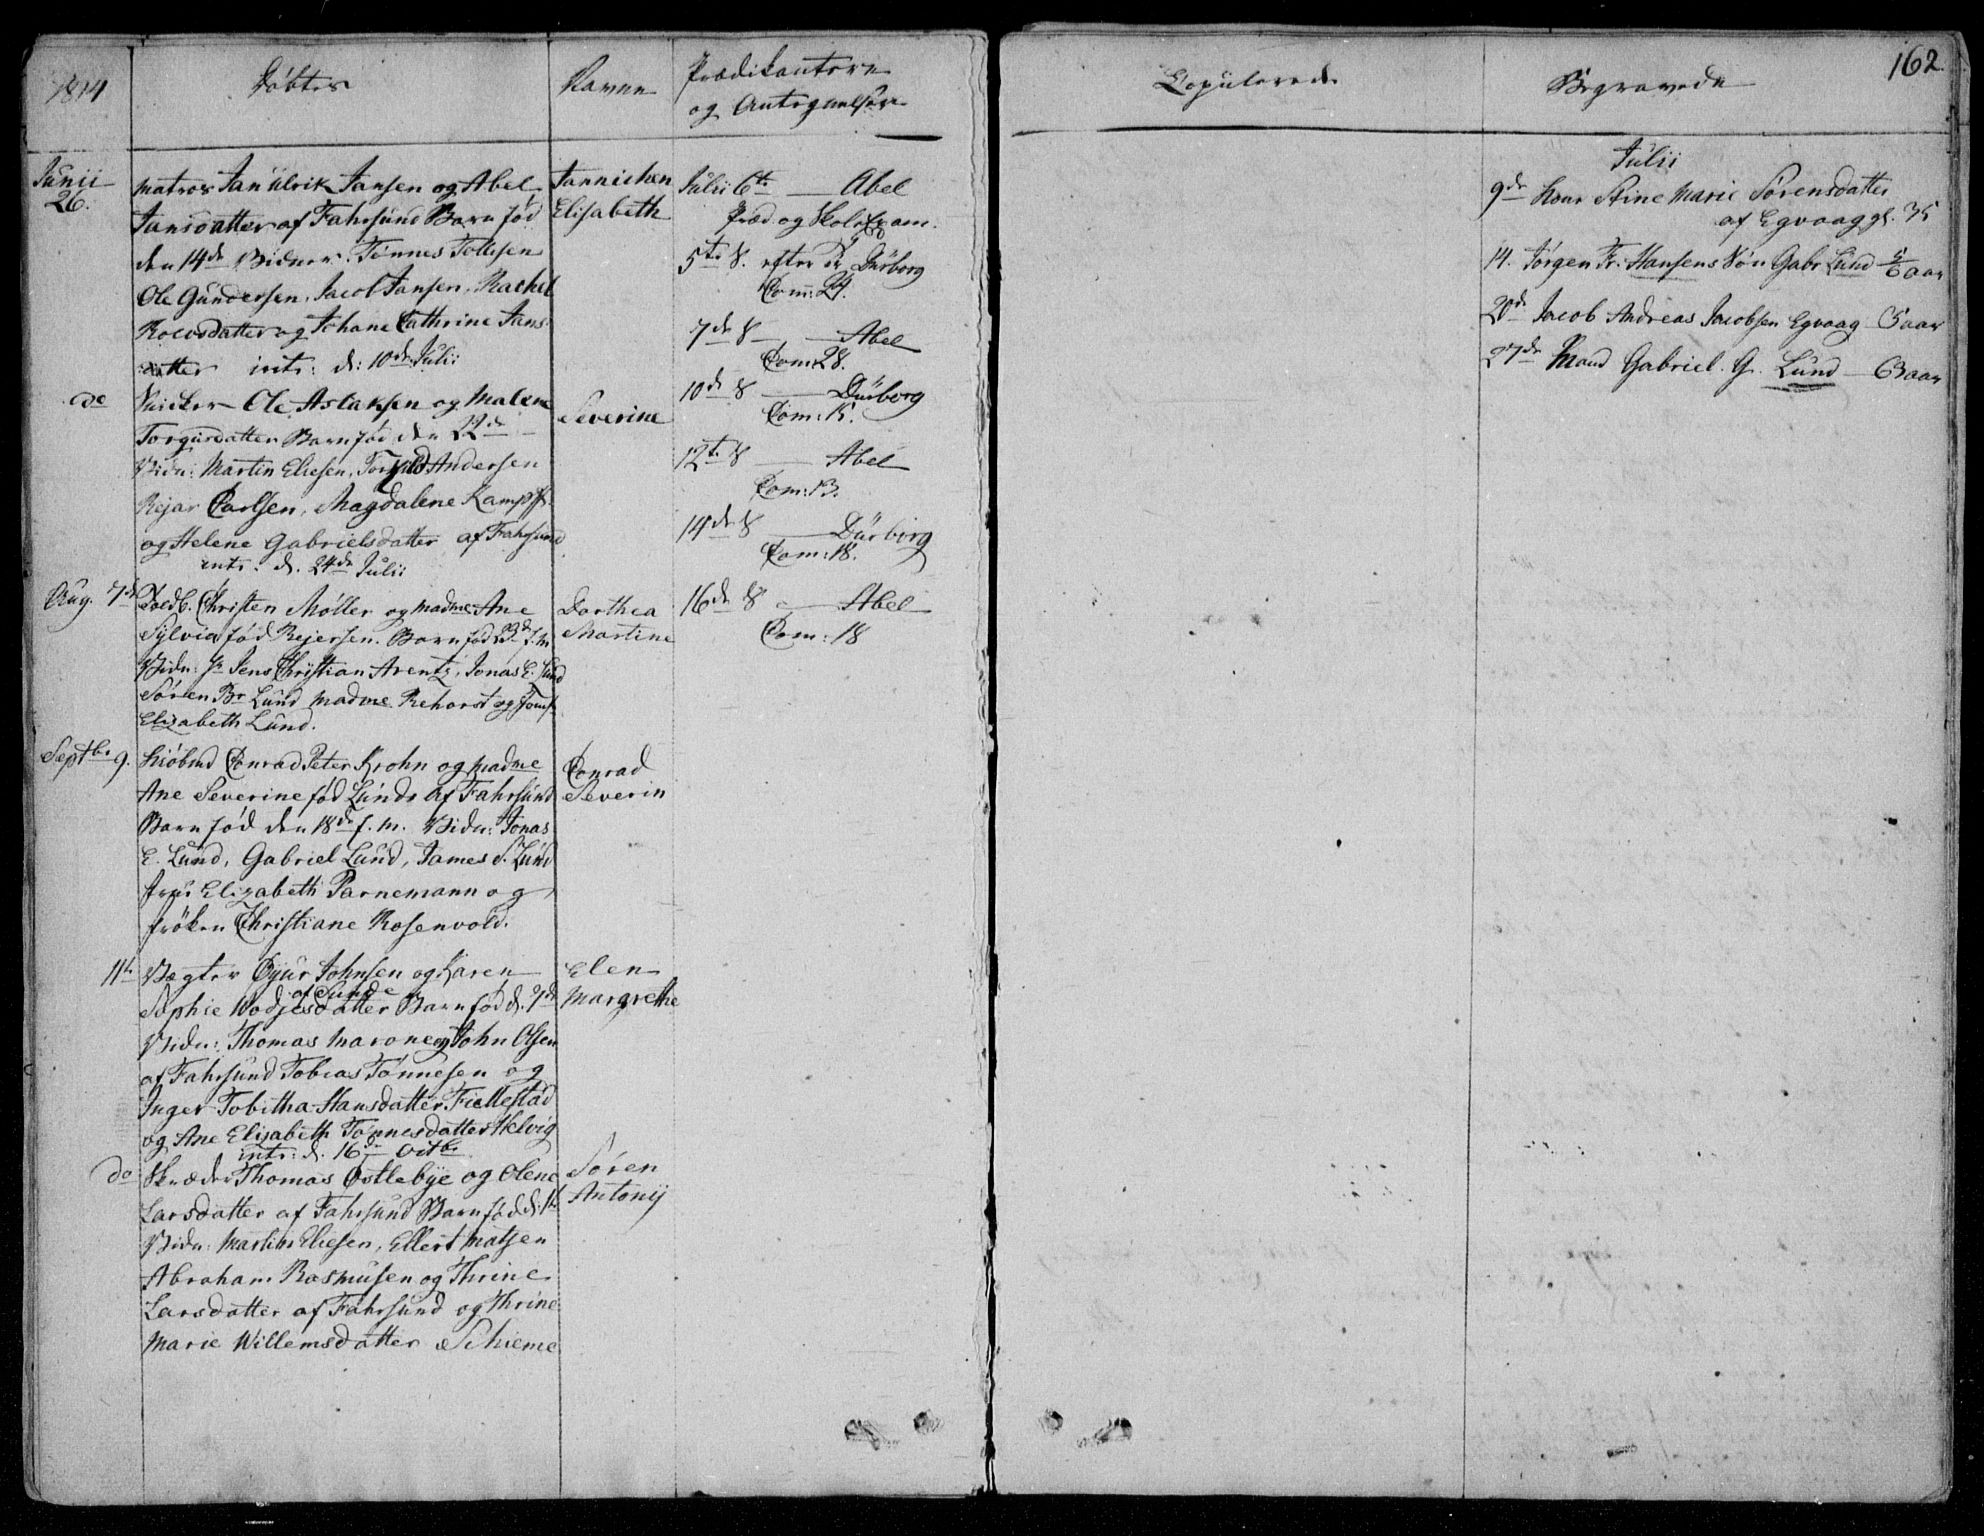 1814
Döbte
Navne
Prædikantere
og Antegnelser
Copulerede
Begravede
162.
Junii
26.
Matros Jan Ulrik Jansen og Abel
Jansdatter af Fahrsund Barn föd
den 14de Vidner: Tönnes Tollesen
Ole Gundersen, Jacob Jansen, Rachel
og Johane Cathrine Jans
datter intr: d: 10de Julii
Jannichen
Elisabeth
do
Ole Aslaksen og Malene
Torgersdatter Barn föd den 22de
Vidn: Martin Eliesen, Andersen
Rejar Carlsen, Magdalene Kampff
og Helene Gabrielsdatter af Fahrsund
intr: d. 24de Julii
Severine
Aug. 7de
Toldb. Christen Møller og Madme Ane
Sylvia föd Rejersen. Barn föd 23d f.m
Vidn: Sr Jens Christian Arentz, Jonas E. Lund
Sören Br Lund Madme Rehorst og Jomf.
Elizabeth Lund.
Dorthea
Martine
Septbr 9.
Kiöbmd Conrad Peter Krohn og Madme
Ane Severine föd Lund af Fahrsund
Barn föd den 18de f.m. Vidn: Jonas
E. Lund, Gabriel Lund, James S. Lund
frue Elizabeth Parnemann og
fröken Christiane Rosenvold.
Conrad
Severin
11te
Vægter Johnsen og Karen
af Sunde
Sophie datter Barn föd d. 7de
Vidn: Thomas Marone og John Olsen
af Fahrsund Tobias Tönnesen og
Inger Tobitha Hansdatter Fiellestad
og Ane Elizabeth Tönnesdatter Helvig
intr: d. 16de Octbr
Elen
Margrethe
do
Skræder Thomas Östlebye og Olene
Larsdatter af Fahrsund Barn föd d. 1te
Vidn: Martin Eliesen, Ellert Matsen
Abraham Rasmusen og Thrine
Larsdatter af Fahrsund og Thrine
Marie Willemsdatter Schieme
Sören
Antonij
Julii 6te — Abel
Præd og Skole Exam.
5te S. efter Tr Dürborg
Com: 24.
7de S — Abel
Com: 28.
10de S — Dürborg
Com: 15.
12te S — Abel
Com: 13.
14de S — Dürborg
Com: 18.
16de S — Abel
Com: 18
Julii
9de Kone Stine Marie Sörensdatter
af Egvaag gl. 35
14. Jörgen Fr: Hansens Sön Gabr Lund 5/6 aar
20de Jacob Andreas Jacobsen Egvaag — 5 aar
27de Mand Gabriel. G. Lund — 63 aar